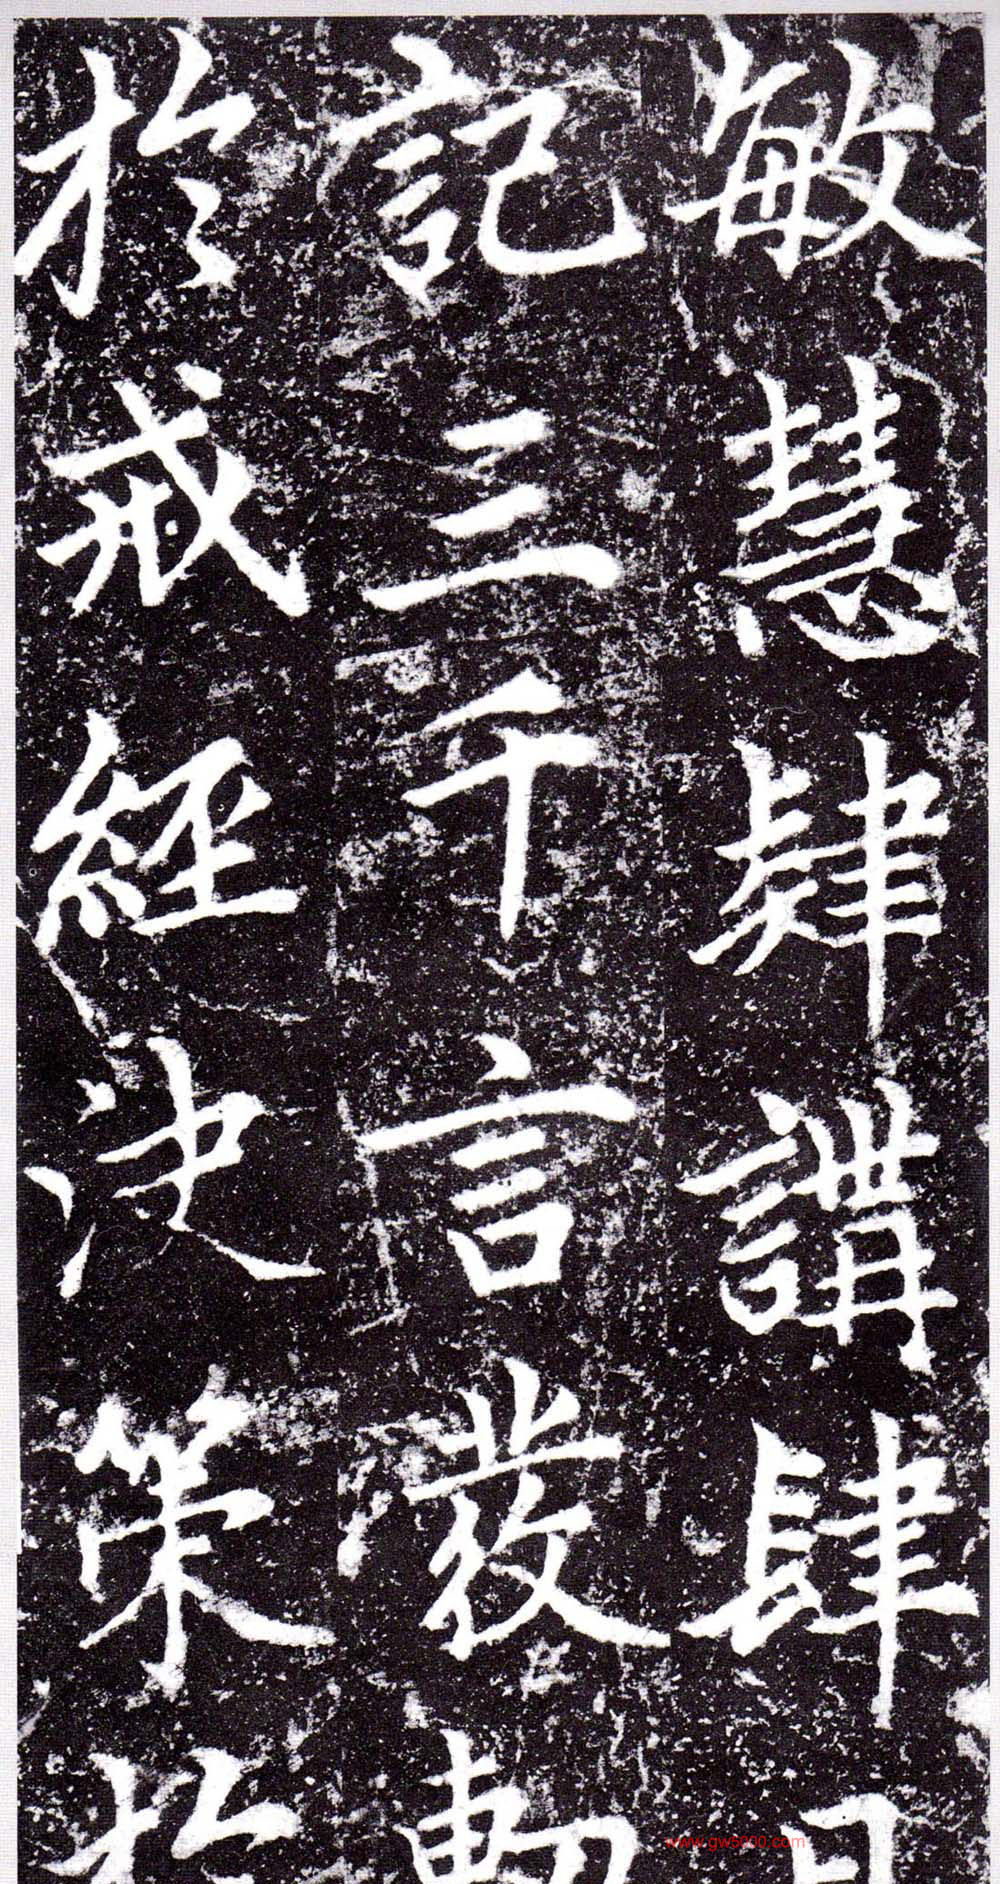 敏慧肄講肆
記三千言發
於戒經決策於
www.gw5000.com